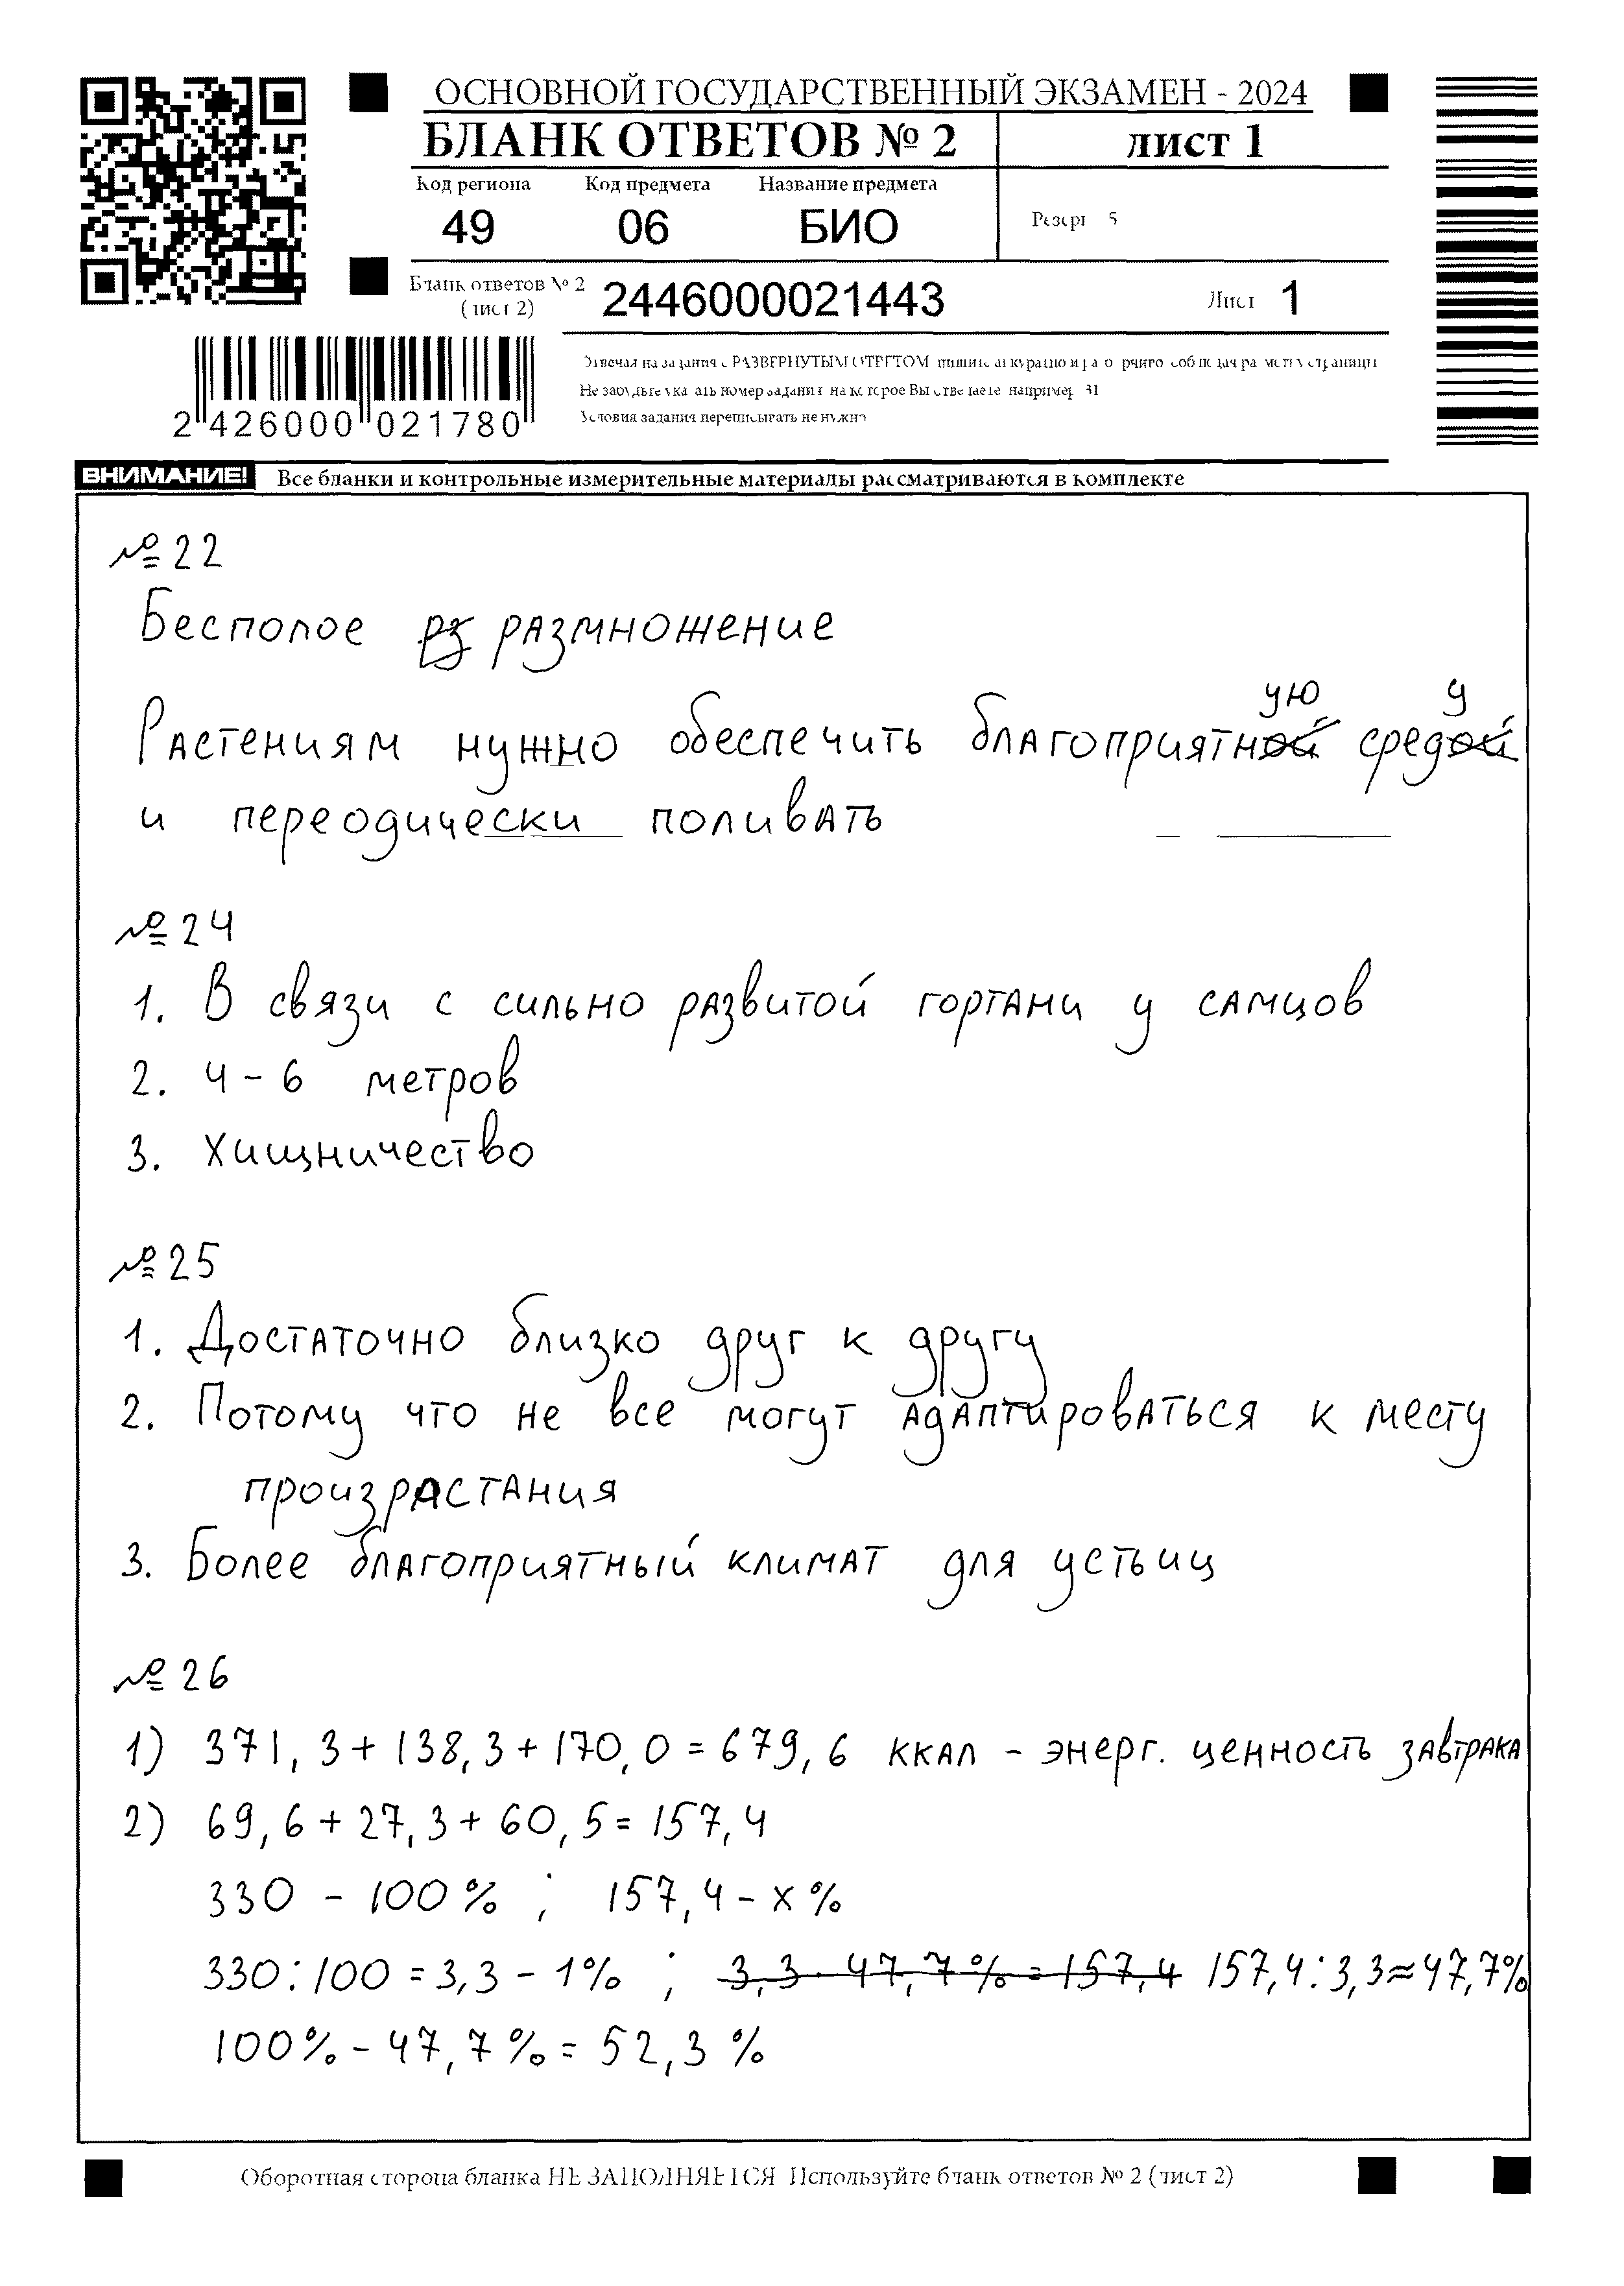 ОСНОВНОЙ ГОСУДАРСТВЕННЫЙ ЭКЗАМЕН - 2024
БЛАНК ОТВЕТОВ № 2
лист 1
Код региона Код предмета Название предмета
49 06 БИО
Резерв 5
Бланк ответов № 2
(лист 2)
2446000021443
Лист 1
2 426000 021780
Отвечая на задания с РАЗВЕРНУТЫМ ОТВЕТОМ, пишите аккуратно и разборчиво, соблюдая разметку страницы
Не забудьте указать номер задания, на которое Вы отвечаете, например, 31
Условия задания переписывать не нужно
ВНИМАНИЕ! Все бланки и контрольные измерительные материалы рассматриваются в комплекте
№22
Бесполое размножение
Растениям нужно обеспечить благоприятную среду
и переодически поливать
№24
1. В связи с сильно развитой гортани у самцов
2. 4-6 метров
3. Хищничество
№25
1. Достаточно близко друг к другу
2. Потому что не все могут адаптироваться к месту
произрастания
3. Более благоприятный климат для устьиц
№26
1) 371,3+138,3+170,0=679,6 ккал - энерг. ценность завтрака
2) 69,6+27,3+60,5=157,4
330 - 100% ; 157,4 - х%
330:100=3,3 - 1% ; 3,3 · 47,7% = 157,4 157,4:3,3≈47,7%
100% - 47,7% = 52,3 %
Оборотная сторона бланка НЕ ЗАПОЛНЯЕТСЯ. Используйте бланк ответов № 2 (лист 2)